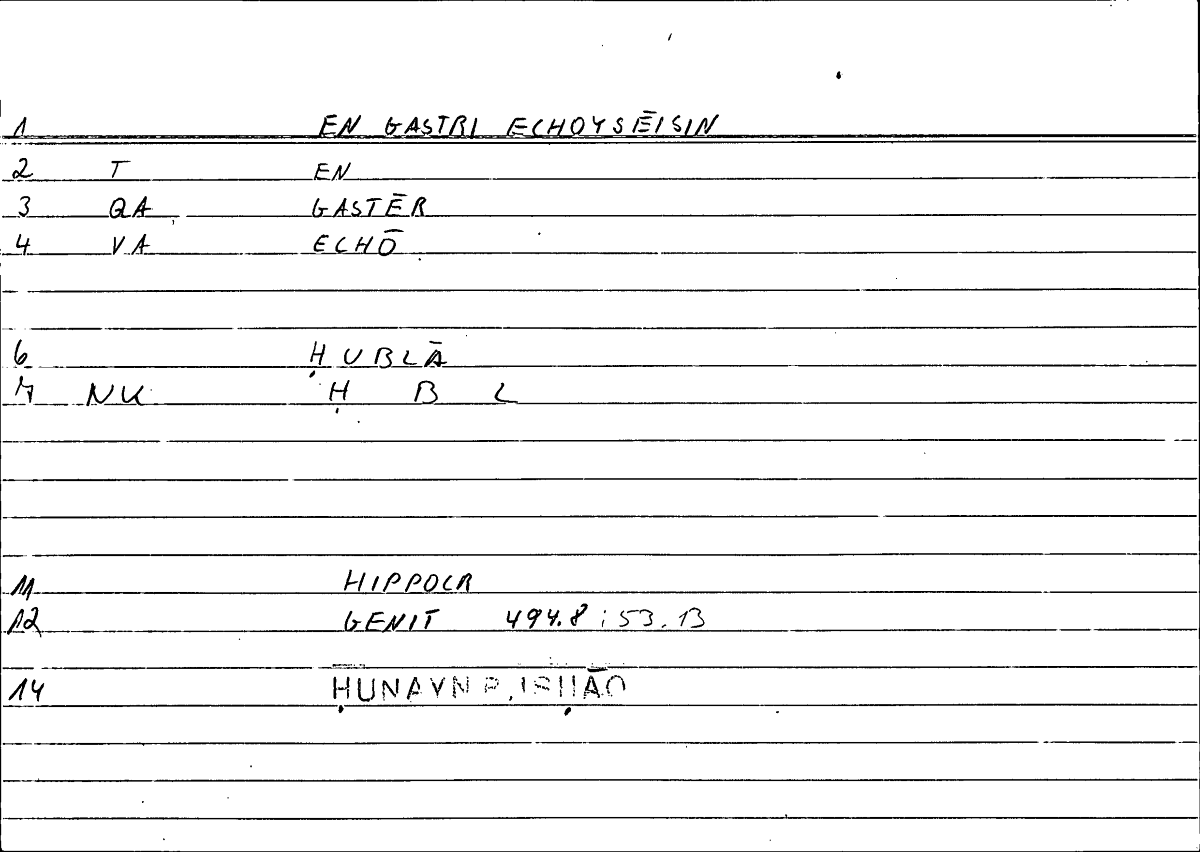 1 EN GASTRI ECHOYSĒISIN
2 T EN
3 QA GASTĒR
4 VA ECHŌ
6 ḤUBLĀ
7 NK Ḥ B L
11 HIPPOCR
12 GENIT 494.8 ; 53.13
14 ḤUNAYN B. ISḤĀQ